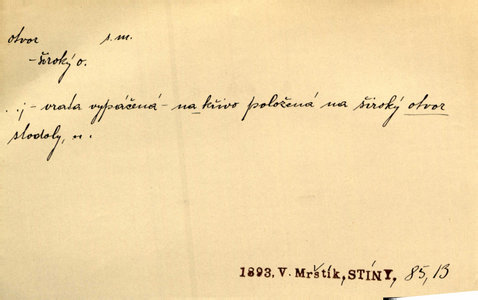 otvor s. m.
- široký o.
..j - vrata vypáčená - na křivo položená na široký otvor
stodoly, n.
1893, V. Mrštík, STÍNY, 85, 13